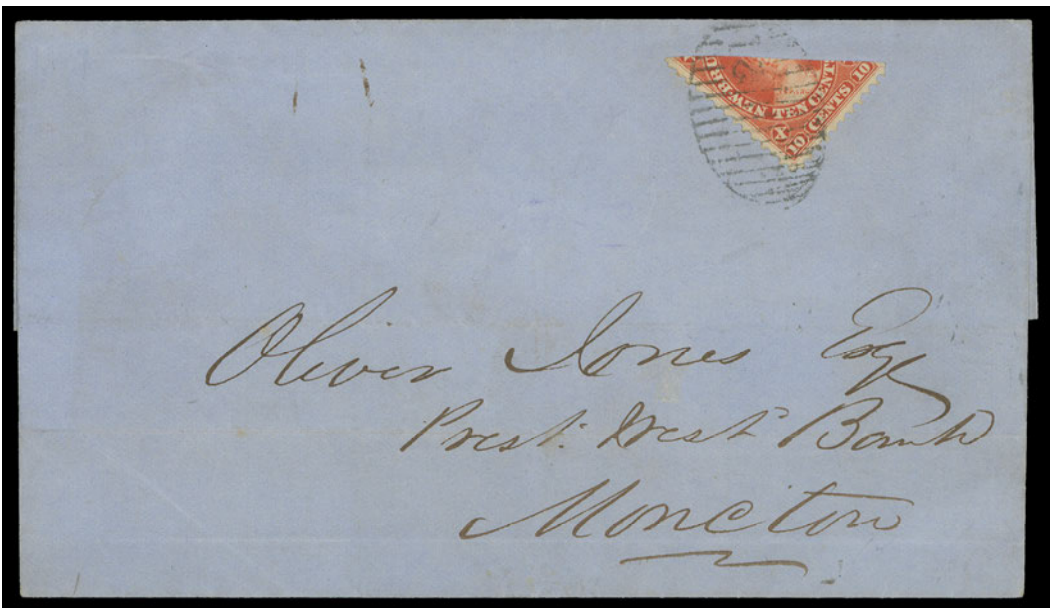 NEW BRU
TEN CENT
X
10
CENTS
10
Oliver Jones Esq
Prest. West Bank
Moncton